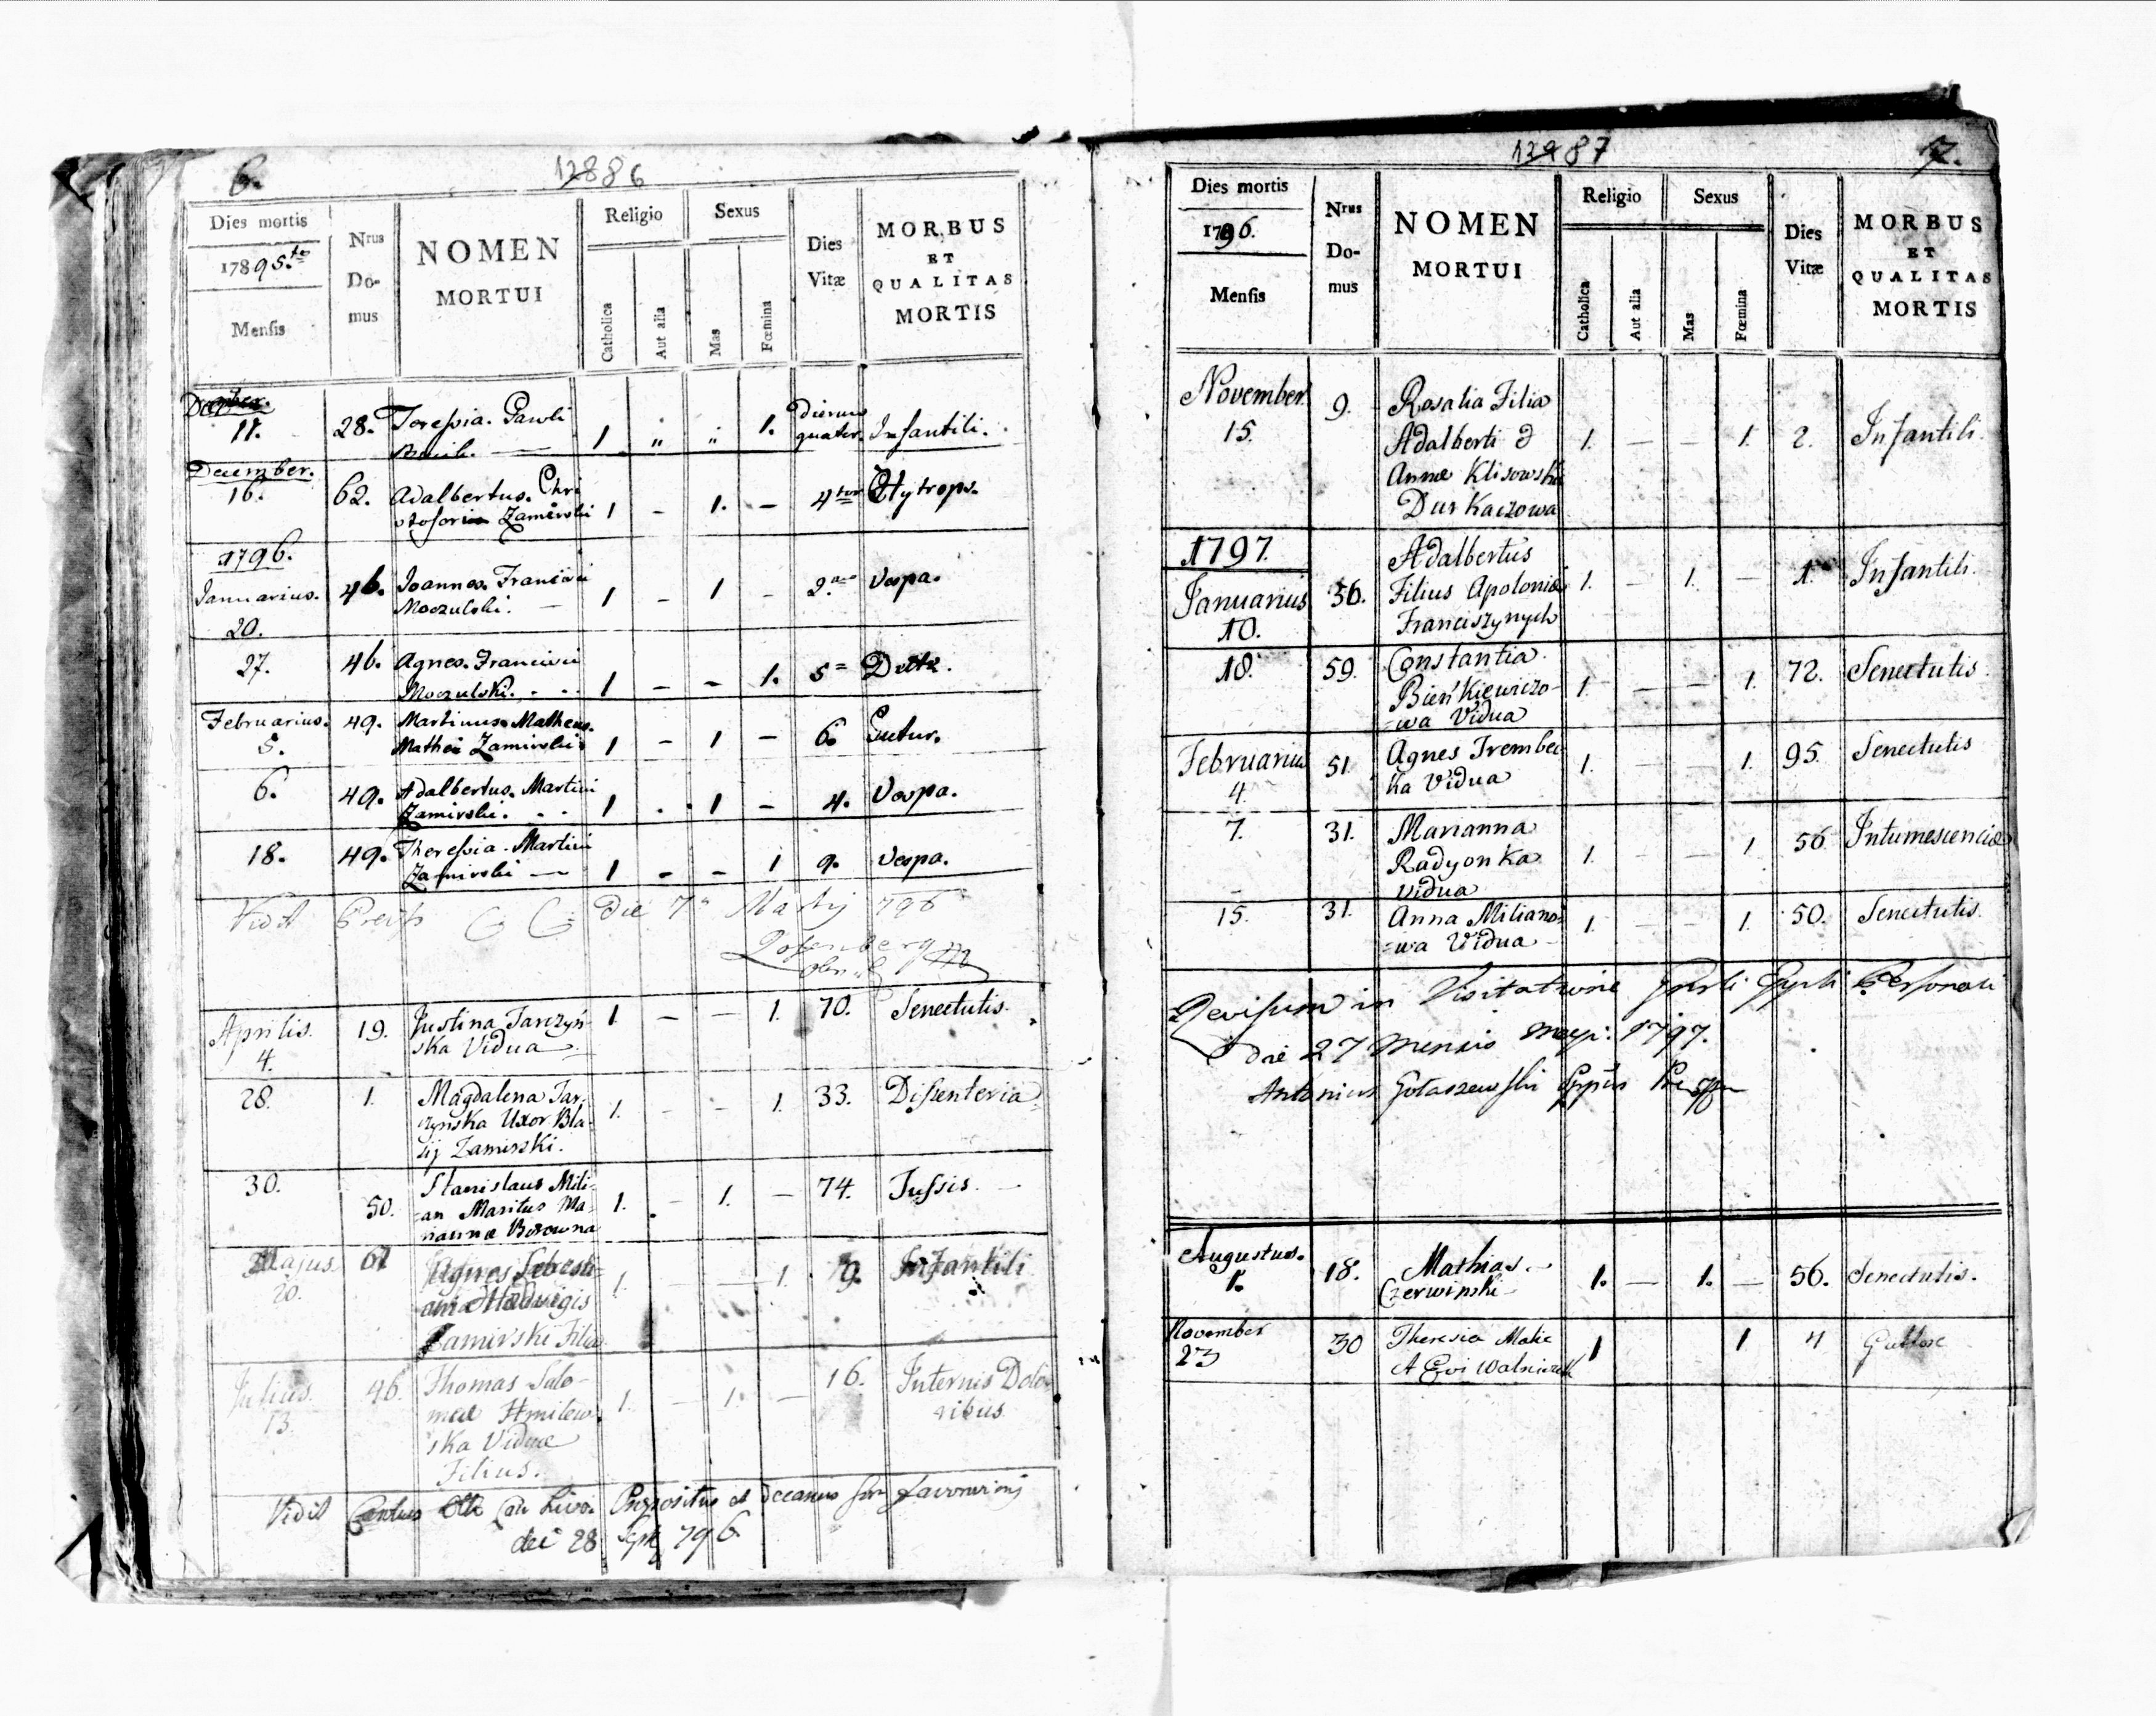 6.
128 86
Dies mortis
1789 5.to
Mensis
Nrus
Do-
mus
NOMEN
MORTUI
Religio
Catholica
Aut alia
Sexus
Mas
Fœmina
Dies
Vitæ
MORBUS
ET
QUALITAS
MORTIS
11. 28. Teressia. Pawli 1 " " 1. dierum quatuor. Infantili.
December.
16. 62. Adalbertus. Chri
stofori Zamirski 1 - 1. - 4
1796.
Januarius. 46. Joannes. Francisci
Moczulski. — 1 - 1 - 2. Vespa.
20.
27. 46. Agnes. Francisci
Moczulski. 1 - - 1. 5
Februarius. 49. Martinus Matheus.
5. Mathei Zamirski 1 - 1 - 6. Gutur.
6. 49. Adalbertus. Martini
Zamirski. 1 . 1 - 4. Vespa.
18. 49. Theressia. Martini
Zamirski — 1 - - 1 9. Vespa.
Vidit Die 7 Martij 796
Aprilis. 19. Justina Tarczyń- 1. — — 1. 70. Senectutis.
4. ska Vidua
28. 1. Magdalena Tar- 1. - - 1. 33. Dissenteria
czynska Uxor Bla-
sij Zamirski.
30. 50. Stanislaus Mili- 1. - 1. — 74. Tussis. —
=an Maritus Ma-
riannæ Borowna
Majus 61 Agnes Sebasti- 1. — — 1. 9. Infantili
20. ani Hedwigis
Zamirski Filia
Julius. 46. Thomas Salo- 1. — 1. — 16. Internis Dolo-
13. meæ Hmilew- ribus
ska Viduæ
Filius.
Vidit Præpositus et Decanus
die 28 Sept 796
129 87
7.
Dies mortis
1796.
Mensis
Nrus
Do-
mus
NOMEN
MORTUI
Religio
Catholica
Aut alia
Sexus
Mas
Fœmina
Dies
Vitæ
MORBUS
ET
QUALITAS
MORTIS
November. 9. Rosalia Filia
15. Adalberti & 1. — — 1. 2. Infantili.
Annæ Klisowski
Durkaczowa
1797. Adalbertus
Januarius 36. Filius Apoloniæ 1. — 1. — 1. Infantili.
10. Franciszynych
18. 59. Constantia 1. — — 1. 72. Senectutis
Bieńkiewiczo-
=wa Vidua
Februarius 51. Agnes Trembec 1. — — 1. 95. Senectutis
4. ka Vidua
7. 31. Marianna 1. — — 1. 56 Intumescencia
Radyonka
Vidua
15. 31. Anna Miliano- 1. — — 1. 50. Senectutis.
=wa Vidua
Revisum in Visitatione Personali
die 27 Mensis 1797.
Antonius Gołaszewski Eppūs
Augustus. 18. Mathias
1. Czerwinski 1. — 1. — 56. Senectutis.
November 30 Theresia
23 1 1 4 Guttore